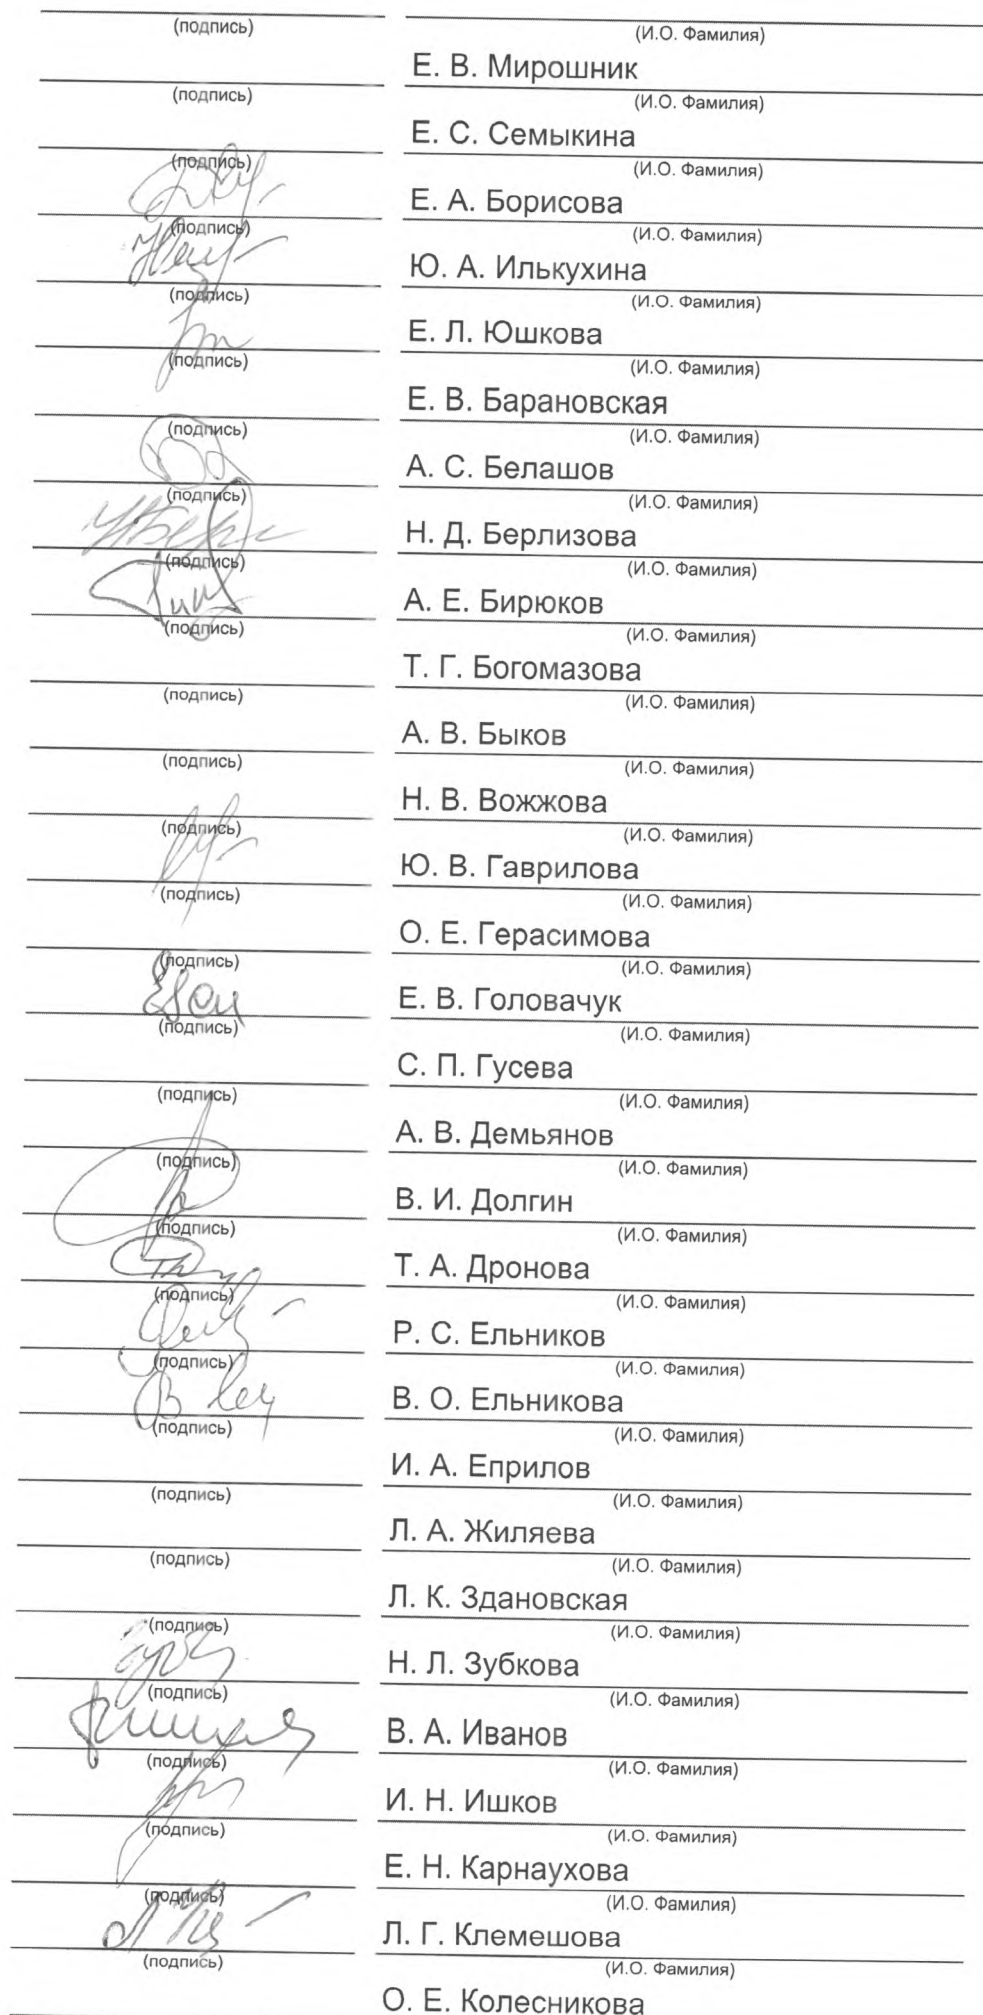 (подпись) (И.О. Фамилия)
Е. В. Мирошник
(подпись) (И.О. Фамилия)
Е. С. Семыкина
(подпись) (И.О. Фамилия)
Е. А. Борисова
(подпись) (И.О. Фамилия)
Ю. А. Илькухина
(подпись) (И.О. Фамилия)
Е. Л. Юшкова
(подпись) (И.О. Фамилия)
Е. В. Барановская
(подпись) (И.О. Фамилия)
А. С. Белашов
(подпись) (И.О. Фамилия)
Н. Д. Берлизова
(подпись) (И.О. Фамилия)
А. Е. Бирюков
(подпись) (И.О. Фамилия)
Т. Г. Богомазова
(подпись) (И.О. Фамилия)
А. В. Быков
(подпись) (И.О. Фамилия)
Н. В. Вожжова
(подпись) (И.О. Фамилия)
Ю. В. Гаврилова
(подпись) (И.О. Фамилия)
О. Е. Герасимова
(подпись) (И.О. Фамилия)
Е. В. Головачук
(подпись) (И.О. Фамилия)
С. П. Гусева
(подпись) (И.О. Фамилия)
А. В. Демьянов
(подпись) (И.О. Фамилия)
В. И. Долгин
(подпись) (И.О. Фамилия)
Т. А. Дронова
(подпись) (И.О. Фамилия)
Р. С. Ельников
(подпись) (И.О. Фамилия)
В. О. Ельникова
(подпись) (И.О. Фамилия)
И. А. Еприлов
(подпись) (И.О. Фамилия)
Л. А. Жиляева
(подпись) (И.О. Фамилия)
Л. К. Здановская
(подпись) (И.О. Фамилия)
Н. Л. Зубкова
(подпись) (И.О. Фамилия)
В. А. Иванов
(подпись) (И.О. Фамилия)
И. Н. Ишков
(подпись) (И.О. Фамилия)
Е. Н. Карнаухова
(подпись) (И.О. Фамилия)
Л. Г. Клемешова
(подпись) (И.О. Фамилия)
О. Е. Колесникова